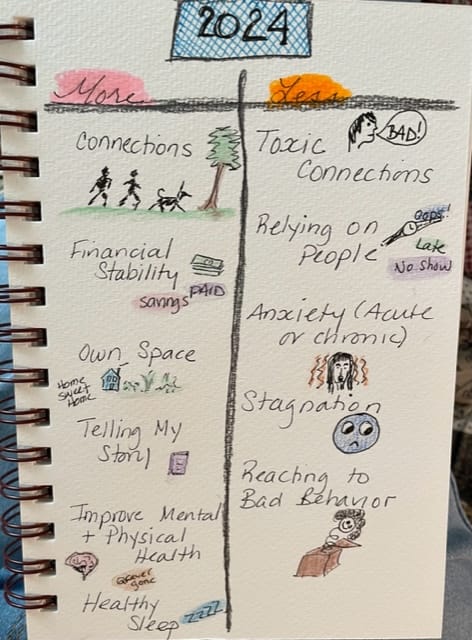 2024
More
Connections
Financial
Stability
savings PAID
Own Space
Home
Sweet
Home
Telling My
Story
Improve Mental
+ Physical
Health
gone
Healthy
Sleep ZZZZ
Less
Toxic
BAD!
Connections
Relying on
Oops!
People
Late
No Show
Anxiety (Acute
or chronic)
Stagnation
Reacting to
Bad Behavior